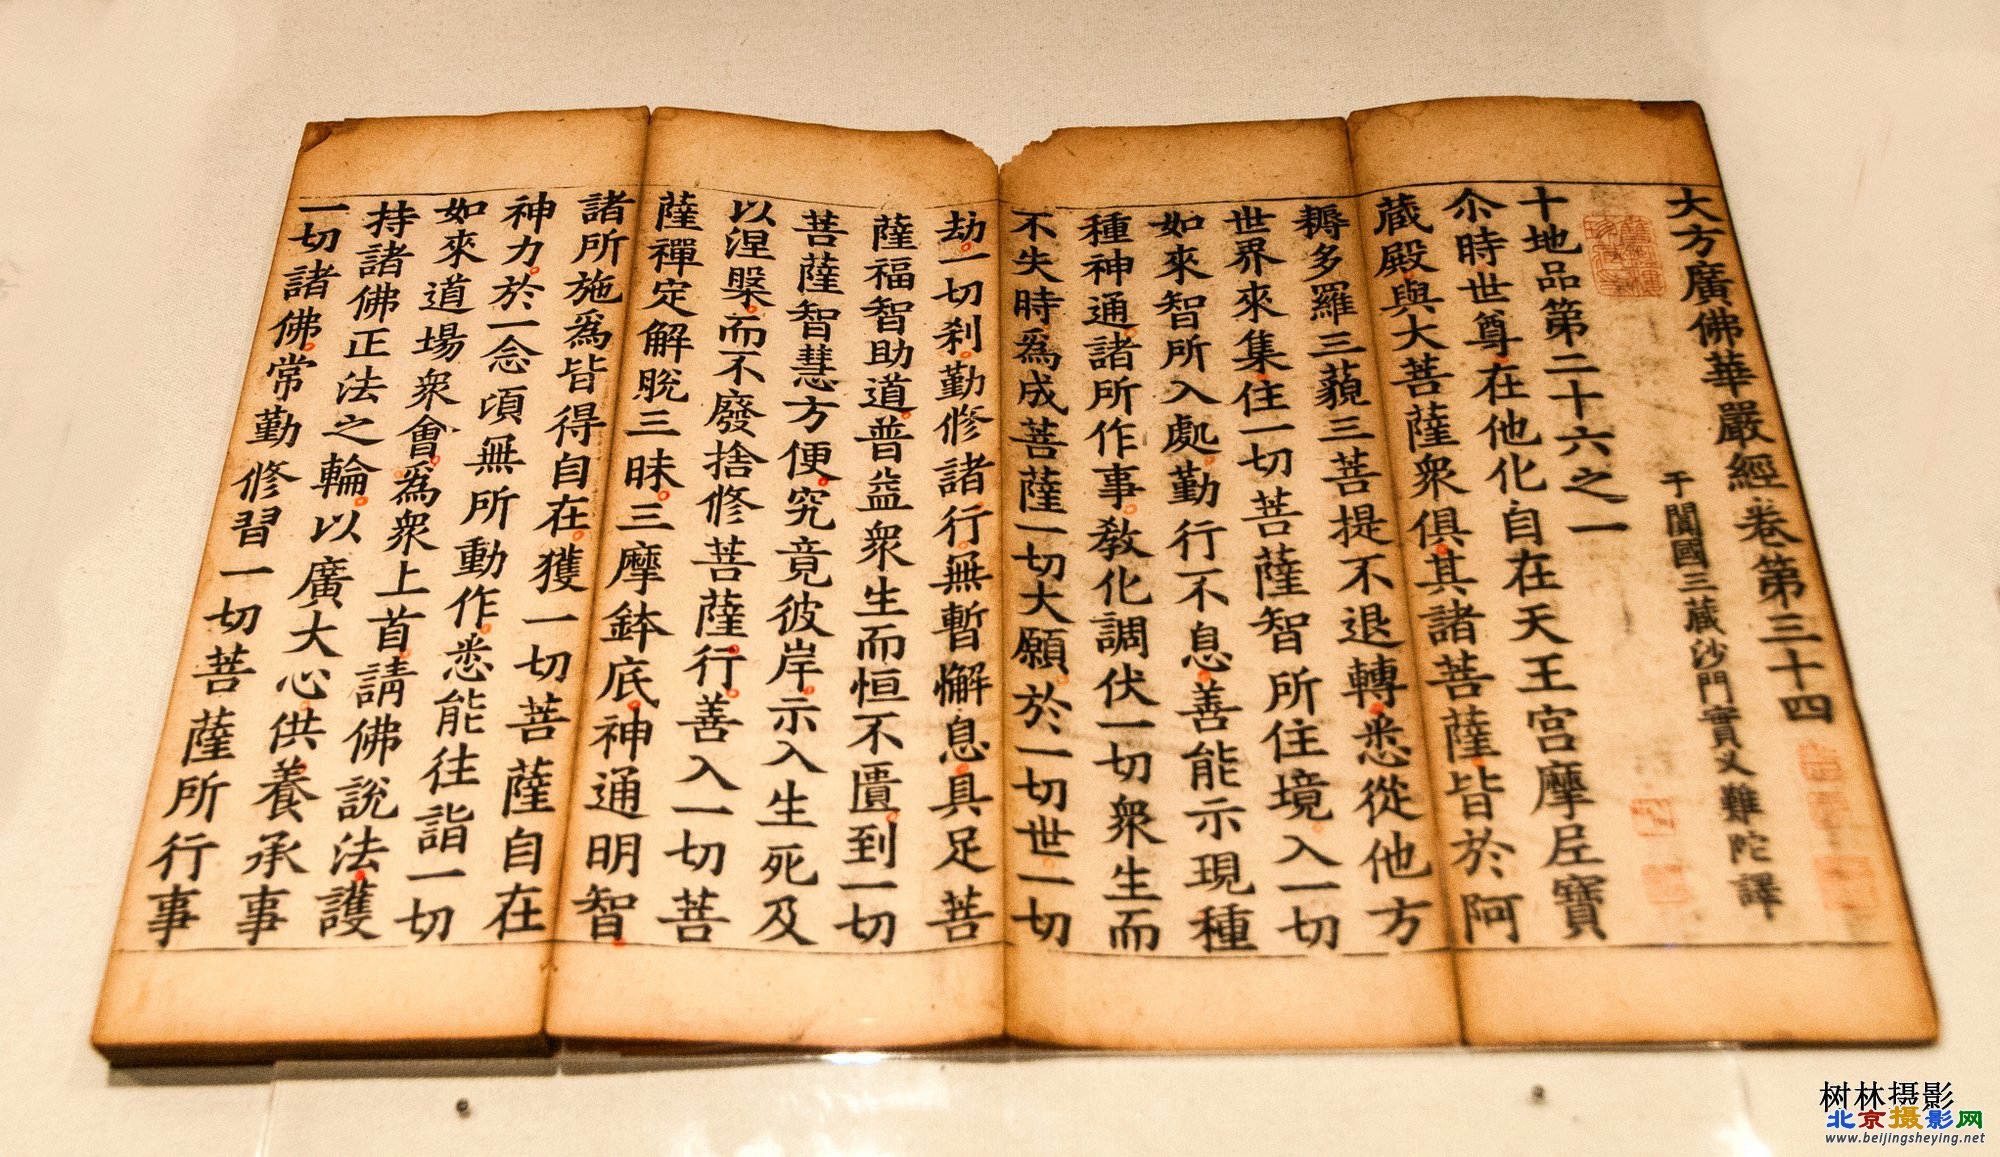 大方廣佛華嚴經卷第三十四
于闐國三藏沙門實叉難陀譯
十地品第二十六之一
尒時世尊在他化自在天王宮摩尼寶
藏殿與大菩薩衆俱其諸菩薩皆於阿
耨多羅三藐三菩提不退轉悉從他方
世界來集住一切菩薩智所住境入一切
如來智所入處勤行不息善能示現種
種神通諸所作事教化調伏一切衆生而
不失時為成菩薩一切大願於一切世一切
劫一切刹勤修諸行無暫懈息具足菩
薩福智助道普益衆生而恒不匱到一切
菩薩智慧方便究竟彼岸示入生死及
以涅槃而不廢捨修菩薩行善入一切菩
薩禪定解脫三昧三摩鉢底神通明智
諸所施為皆得自在獲一切菩薩自在
神力於一念頃無所動作悉能往詣一切
如來道場衆會為衆上首請佛說法護
持諸佛正法之輪以廣大心供養承事
一切諸佛常勤修習一切菩薩所行事
树林摄影
北京摄影网
www.beijingsheying.net